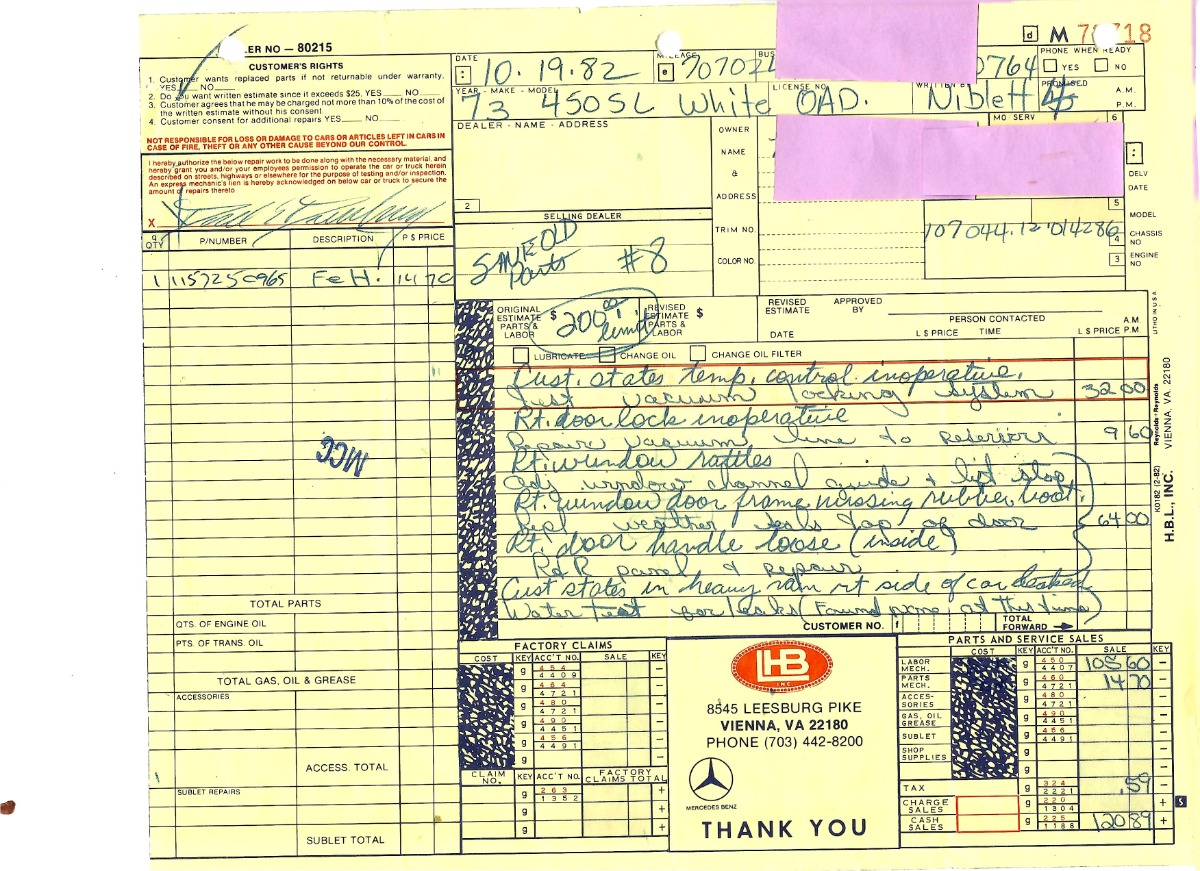 LER NO — 80215
CUSTOMER'S RIGHTS
1. Customer wants replaced parts if not returnable under warranty.
YES NO
2. Do you want written estimate since it exceeds $25. YES NO
3. Customer agrees that he may be charged not more than 10% of the cost of the written estimate without his consent.
4. Customer consent for additional repairs YES NO
NOT RESPONSIBLE FOR LOSS OR DAMAGE TO CARS OR ARTICLES LEFT IN CARS IN CASE OF FIRE, THEFT OR ANY OTHER CAUSE BEYOND OUR CONTROL.
I hereby authorize the below repair work to be done along with the necessary material, and
hereby grant you and/or your employees permission to operate the car or truck herein
described on streets, highways or elsewhere for the purpose of testing and/or inspection.
An express mechanic's lien is hereby acknowledged on below car or truck to secure the
amount of repairs thereto
X
DATE 10.19.82 MILEAGE BUS
d M 718
0764
PHONE WHEN READY
YES NO
YEAR - MAKE - MODEL LICENSE NO WRITTEN B PROMISED A.M. P.M.
73 450SL White OAD. Niblett
DEALER - NAME - ADDRESS
OWNER
NAME
&
ADDRESS
MO SERV 6
DELV
DATE
2
5
MODEL
SELLING DEALER
SAVE OLD
Parts #8
TRIM NO.
COLOR NO.
107044.12 014286
4
CHASSIS NO
3
ENGINE NO
QTY P/NUMBER DESCRIPTION P $ PRICE
1 1157250965 FeH. 14 70
ORIGINAL ESTIMATE PARTS & LABOR $ 200.00 limit
REVISED ESTIMATE PARTS & LABOR $
REVISED ESTIMATE APPROVED BY
PERSON CONTACTED
DATE L $ PRICE TIME A.M. L $ PRICE P.M.
LUBRICATE CHANGE OIL CHANGE OIL FILTER
Cust. states temp. control inoperative.
Test vacuum locking system 32 00
Rt. door lock inoperative
Repair vacuum line to 9 60
Rt. window rattles
Adj window channel guide & lift stop
Rt. window door frame missing rubber boot.
Repl weather seals top of door 64 00
Rt. door handle loose (inside)
R&R panel & repair
Cust states in heavy rain rt side of car leaked
Water test for leaks (Found none at this time)
MCC
TOTAL PARTS
QTS. OF ENGINE OIL
PTS. OF TRANS. OIL
TOTAL GAS, OIL & GREASE
ACCESSORIES
ACCESS. TOTAL
SUBLET REPAIRS
SUBLET TOTAL
CUSTOMER NO. TOTAL FORWARD
FACTORY CLAIMS
COST KEY ACC'T NO. SALE KEY
g 454 4409 –
g 464 4721 –
g 480 4721 –
g 490 4451 –
g 456 4491 –
g –
CLAIM NO. KEY ACC'T NO. FACTORY CLAIMS TOTAL
g 263 1352 +
g +
g +
LHB
INC
8545 LEESBURG PIKE
VIENNA, VA 22180
PHONE (703) 442-8200
MERCEDES BENZ
THANK YOU
PARTS AND SERVICE SALES
COST KEY ACC'T NO. SALE KEY
LABOR MECH. g 450 4407 105 60 –
PARTS MECH. g 460 4721 14 70 –
ACCESSORIES g 480 4721 –
GAS, OIL GREASE g 490 4451 –
SUBLET g 456 4491 –
SHOP SUPPLIES g –
g –
TAX g 324 2221 .59 –
CHARGE SALES g 220 1304 +
CASH SALES g 225 1188 120 89 +
S
LITHO IN U S A
K0182 (2-82) Reynolds + Reynolds
H.B.L., INC. VIENNA, VA 22180